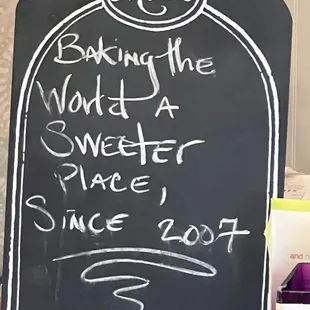 Baking the
World A
Sweeter
Place,
Since 2007
and